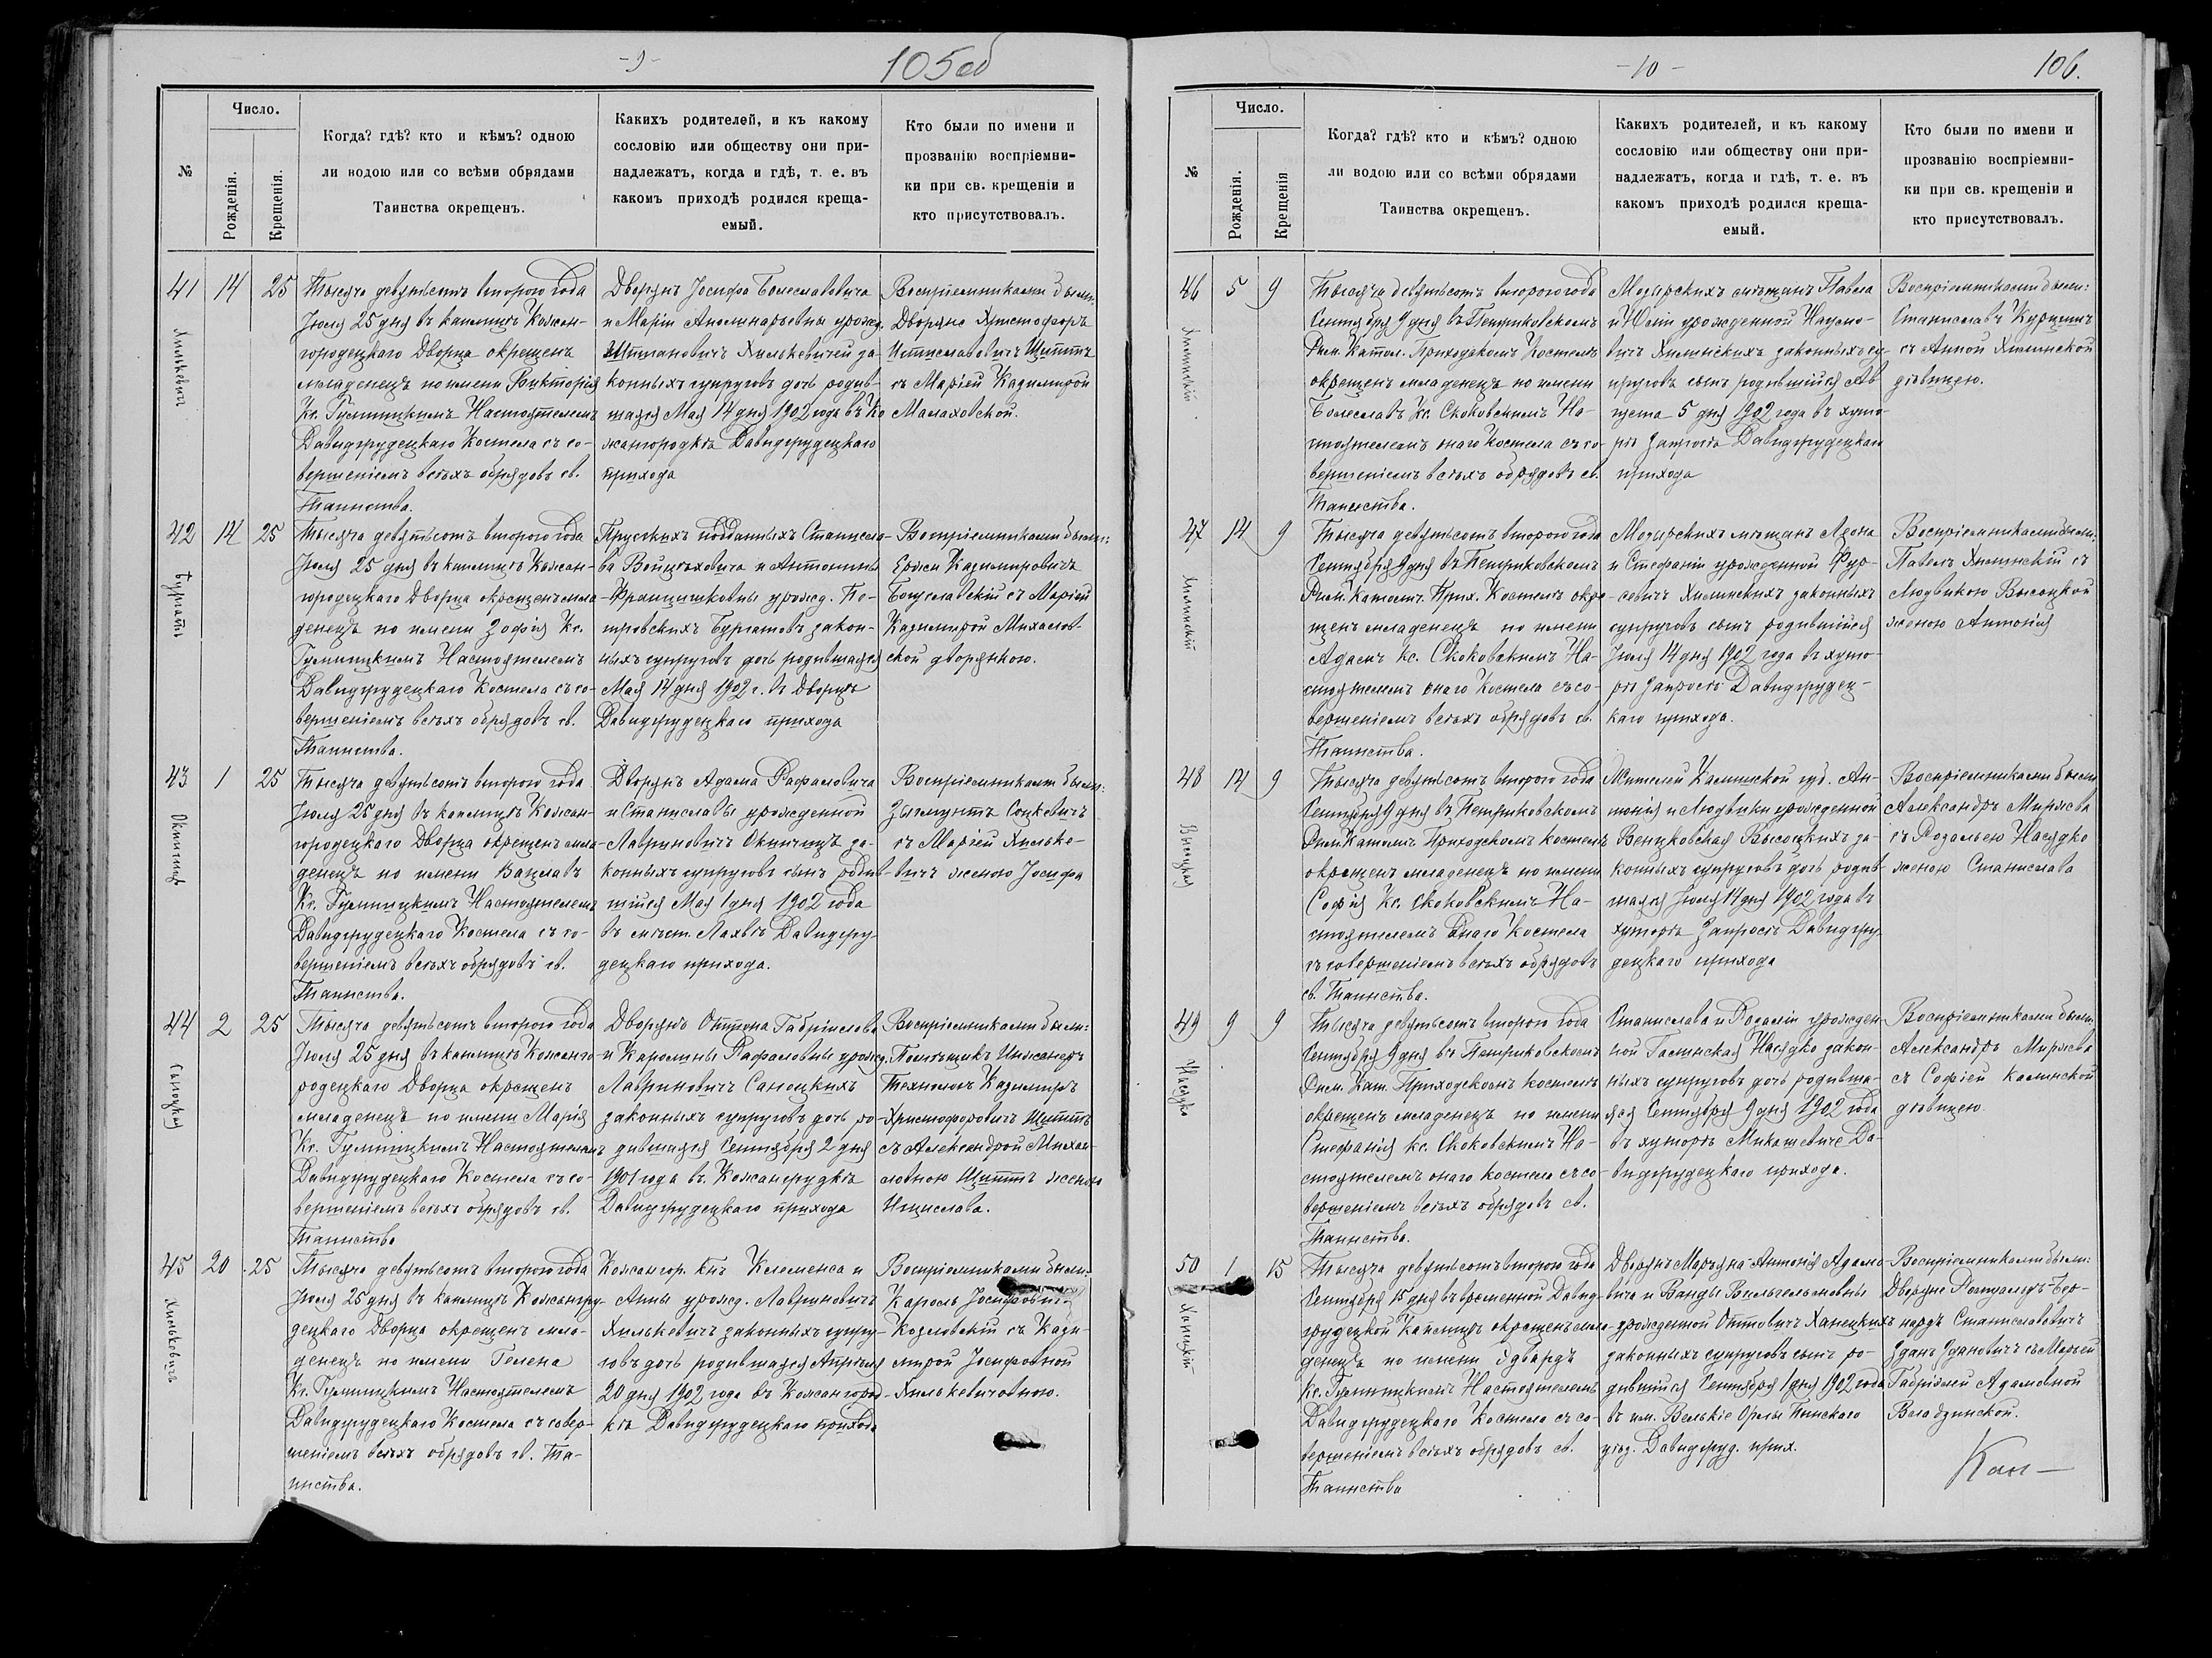 -9-
105об
Число.
№
Рожденія.
Крещенія.
Когда? гдѣ? кто и кѣмъ? одною
ли водою или со всѣми обрядами
Таинства окрещенъ.
Какихъ родителей, и къ какому
сословію или обществу они при-
надлежатъ, когда и гдѣ, т. е. въ
какомъ приходѣ родился креща-
емый.
Кто были по имени и
прозванію воспріемни-
ки при св. крещеніи и
кто присутствовалъ.
41
14
25
Хилькевичъ
Тысяча девятьсотъ второго года
Іюля 25 дня въ каплицѣ Кожан-
городецкаго Дворца окрещенъ
младенецъ по имени Викторія
Кс. Гулницкимъ Настоятелемъ
Давидгрудецкаго Костела съ со-
вершеніемъ всѣхъ обрядовъ св.
Таинства.
Дворянъ Іосифа Болеславовича
и Маріи Аполинарьевны урожд.
Хилькевичей за-
конныхъ супруговъ дочь родив-
шаяся Мая 14 дня 1902 года въ Ко
жангородкѣ Давидгрудецкаго
прихода
Воспріемниками были:
Дворяне Христофоръ
Щиттъ
съ Маріей Казимирой
Малаховской.
42
14
25
Бургатъ
Тысяча девятьсотъ второго года
Іюля 25 дня въ каплицѣ Кожан-
городецкаго Дворца окрещенъ мла-
денецъ по имени Зофія Кс.
Гулницкимъ Настоятелемъ
Давидгрудецкаго Костела съ со-
вершеніемъ всѣхъ обрядовъ св.
Таинства.
Прусскихъ подданныхъ Станисла-
ва Войцѣховича и Антонины
Францишковны урожд. По-
тровскихъ Бургатовъ закон-
ныхъ супруговъ дочь родившаяся
Мая 14 дня 1902 г. въ Дворцѣ
Давидгрудецкаго прихода
Воспріемниками были:
Ержи Казимировичъ
Богуславскій съ Маріей
Казимирой Малахов-
ской дворянкою.
43
1
25
Окиничицъ
Тысяча девятьсотъ второго года
Іюля 25 дня въ каплицѣ Кожан-
городецкаго Дворца окрещенъ мла-
денецъ по имени Вацлавъ
Кс. Гулницкимъ Настоятелемъ
Давидгрудецкаго Костела съ со-
вершеніемъ всѣхъ обрядовъ св.
Таинства.
Дворянъ Адама Рафаловича
и Станиславы урожденной
Лавриновичъ Окинчицъ за-
конныхъ супруговъ сынъ родив-
шійся Мая 1 дня 1902 года
въ мѣст. Лахвѣ Давидгру-
децкаго прихода.
Воспріемниками были:
Зыгмунтъ Соцкевичъ
съ Маріей Хильке-
вичъ женою Іосифа
44
2
25
Санецкая
Тысяча девятьсотъ второго года
Іюля 25 дня въ каплицѣ Кожанго-
родецкаго Дворца окрещенъ
младенецъ по имени Марія
Кс. Гулницкимъ Настоятелемъ
Давидгрудецкаго Костела съ со-
вершеніемъ всѣхъ обрядовъ св.
Таинства
Дворянъ Оттона Габріелова
и Каролины Рафаловны урожд.
Лавриновичъ Санецкихъ
законныхъ супруговъ дочь ро-
дившаяся Сентября 2 дня
1901 года въ Кожангрудкѣ
Давидгрудецкаго прихода
Воспріемниками были:
Помѣщикъ Инженеръ
Технологъ Казимиръ
Христофоровичъ Щиттъ
съ Александрой Михай-
ловною Щиттъ женою
Ицислава.
45
20
25
Хилькевичъ
Тысяча девятьсотъ второго года
Іюля 25 дня въ каплицѣ Кожангру-
децкаго Дворца окрещенъ мла-
денецъ по имени Гелена
Кс. Гулницкимъ Настоятелемъ
Давидгрудецкаго Костела съ совер-
шеніемъ всѣхъ обрядовъ св. Та-
инства.
Кожангор. Клеменса и
Анны урожд. Лавриновичъ
Хилькевичъ законныхъ супру-
говъ дочь родившаяся Апрѣля
20 дня 1902 года въ Кожангород-
кѣ Давидгрудецкаго прихода
Воспріемниками были:
Кароль Іосифовичъ
Козловскій съ Кази-
мирой Іосифовной
Хилькевичовною.
-10-
106.
Число.
№
Рожденія.
Крещенія
Когда? гдѣ? кто и кѣмъ? одною
ли водою или со всѣми обрядами
Таинства окрещенъ.
Какихъ родителей, и къ какому
сословію или обществу они при-
надлежатъ, когда и гдѣ, т. е. въ
какомъ приходѣ родился креща-
емый.
Кто были по имени и
прозванію воспріемни-
ки при св. крещеніи и
кто присутствовалъ.
46
5
9
Хилинскій
Тысяча девятьсотъ второго года
Сентября 9 дня въ Петриковскомъ
Рим. Катол. Приходскомъ Костелѣ
окрещенъ младенецъ по имени
Болеславъ Кс. Скоковскимъ На-
стоятелемъ онаго Костела съ со-
вершеніемъ всѣхъ обрядовъ св.
Таинства.
Мозырскихъ мѣщанъ Павла
и Юліи урожденной Наумо-
вичъ Хилинскихъ законныхъ су-
пруговъ сынъ родившійся Ав
густа 5 дня 1902 года въ хуто-
рѣ Запросѣ Давидгрудецкаго
прихода
Воспріемниками были:
Станиславъ Курницъ
съ Анной Хилинской
дѣвицею.
47
14
9
Хилинскій
Тысяча девятьсотъ второго года
Сентября 9 дня въ Петриковскомъ
Рим. Катол. Прих. Костелѣ окре-
щенъ младенецъ по имени
Адамъ Кс. Скоковскимъ На-
стоятелемъ онаго Костела съ со-
вершеніемъ всѣхъ обрядовъ св.
Таинства.
Мозырскихъ мѣщанъ Леона
и Стефаніи урожденной Фур-
севичъ Хилинскихъ законныхъ
супруговъ сынъ родившійся
Іюля 14 дня 1902 года въ хуто-
рѣ Запросѣ Давидгрудец-
каго прихода.
Воспріемниками были:
Павелъ Хилинскій съ
Людвикою Высоцкой
женою Антонія
48
14
9
Высоцкая
Тысяча девятьсотъ второго года
Сентября 9 дня въ Петриковскомъ
Рим. Катол. Приходскомъ костелѣ
окрещенъ младенецъ по имени
Софія Кс. Скоковскимъ На-
стоятелемъ онаго Костела
съ совершеніемъ всѣхъ обрядовъ
св. Таинства.
Жителей Калишской губ. Ан-
тонія и Людвики урожденной
Венцковская Высоцкихъ за-
конныхъ супруговъ дочь родив-
шаяся Іюля 14 дня 1902 года въ
хуторѣ Запросѣ Давидгру-
децкаго прихода
Воспріемниками были
Александръ Миржва
съ Розальею Насядко
женою Станислава
49
9
9
Насядко
Тысяча девятьсотъ второго года
Сентября 9 дня въ Петриковскомъ
Рим. Кат. Приходскомъ костелѣ
окрещенъ младенецъ по имени
Стефанія кс. Скоковскимъ На-
стоятелемъ онаго костела съ со-
вершеніемъ всѣхъ обрядовъ св.
Таинства.
Станислава и Розаліи урожден-
ной Насядко закон-
ныхъ супруговъ дочь родивша-
яся Сентября 9 дня 1902 года
въ хуторѣ Микашевиче Да-
видгрудецкаго прихода.
Воспріемниками были:
Александръ Миржва
съ Софіей Калинской
дѣвицею
50
1
15
Ханецкій
Тысяча девятьсотъ второго года
Сентября 15 дня въ временной Давид-
грудецкой Каплицѣ окрещенъ мла-
денецъ по имени Эдвардъ
Кс. Гулницкимъ Настоятелемъ
Давидгрудецкаго Костела съ со-
вершеніемъ всѣхъ обрядовъ св.
Таинства
Дворянъ Марьяна-Антонія Адамо-
вича и Ванды Вильгельмовны
урожденной Оттовичъ Ханецкихъ
законныхъ супруговъ сынъ ро-
дившійся Сентября 1 дня 1902 года
въ им. Велькіе Орлы Пинскаго
уѣзд. Давидгруд. прих.
Воспріемниками были:
Дворяне Ромуальдъ-Бер-
нардъ Станиславовичъ
съ Маріей
Габріелей Адамовной
Владзинской.